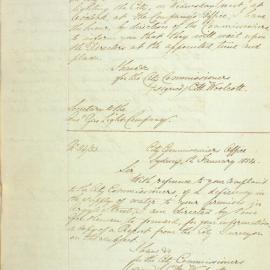 lighting the City, on Wednesday next, at
o'clock, at the Company's Office, I have
the honor, by direction of the Commissioners
to inform you that they will wait upon
the Directors at the appointed time and
place.
I have &c
for the City Commissioners
(signed) C. H. Woolcott
Secretary to the
Gas Light Company.
City Commissioners Office
Sydney, 12 January 1854.
Sir,
With reference to your complaint
to the City Commissioners, of a deficiency in
the supply of water to your premises in
Street, I am directed by
to forward, for your information,
a copy of a Report from the City Surveyor
on the subject.
I have &c
for the City Commissioners